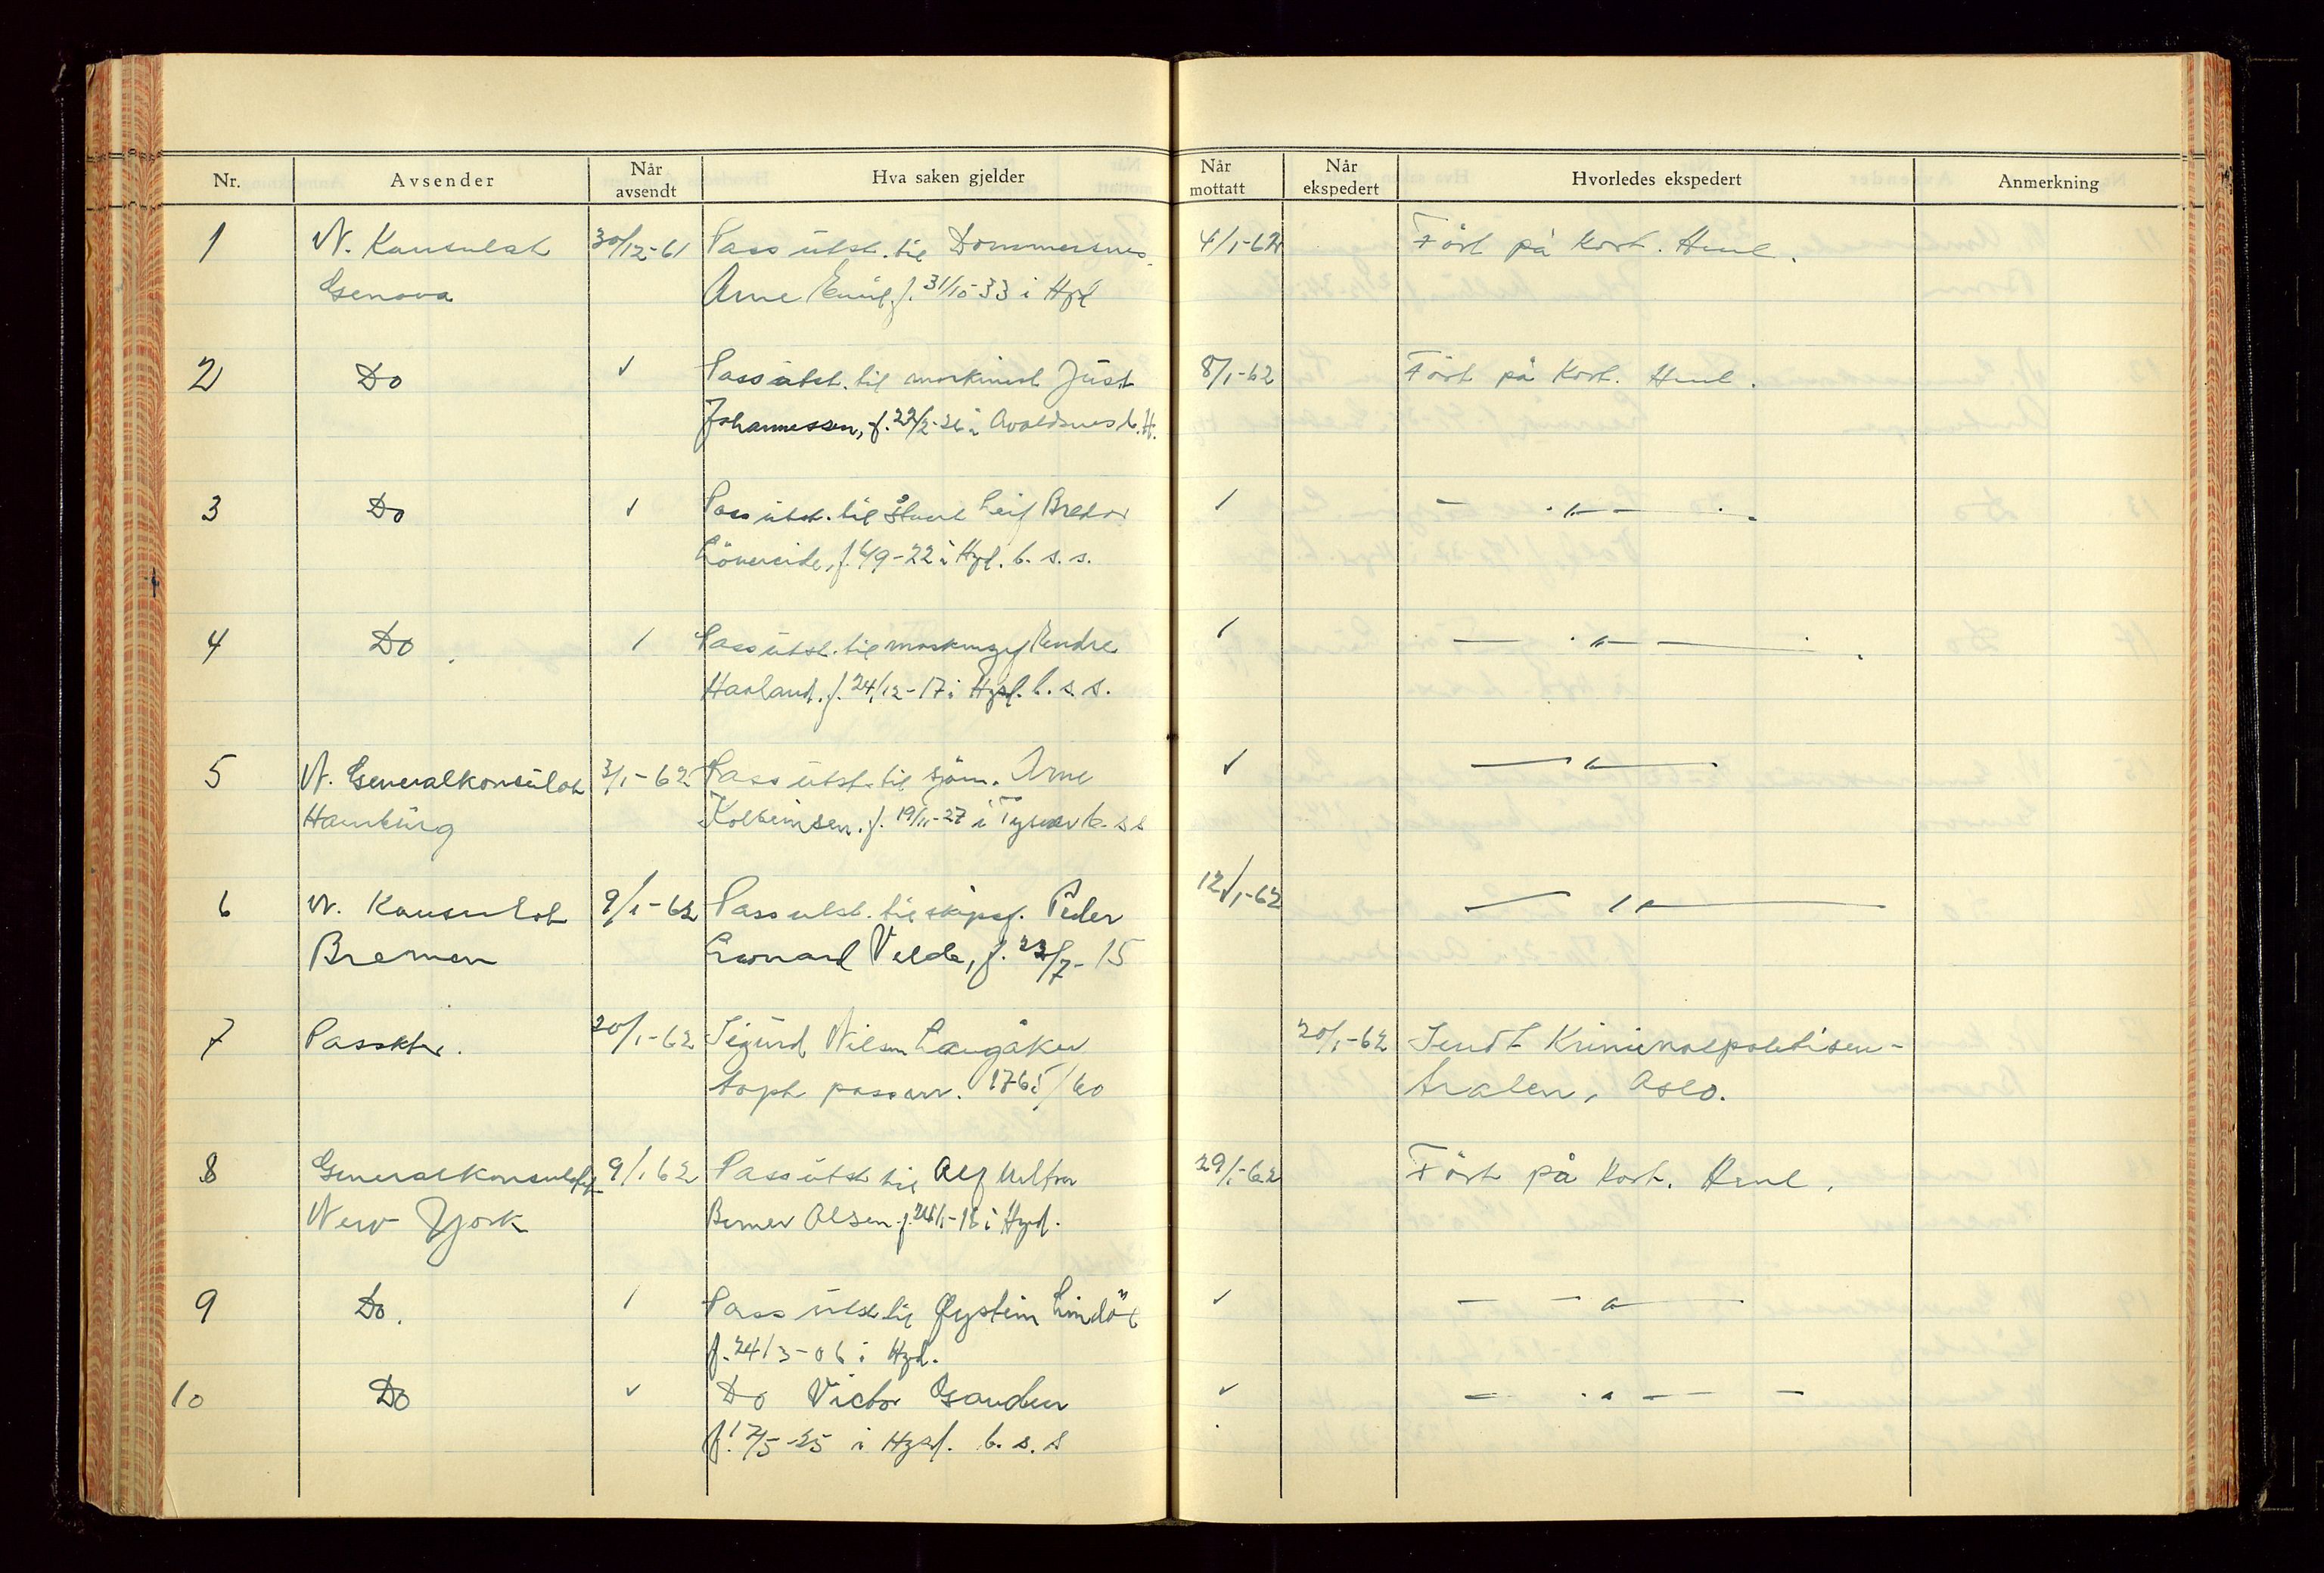 Nr. Avsender Når avsendt Hva saken gjelder Når mottatt Når ekspedert Hvorledes ekspedert Anmerkning
1 N. Konsulat 30/12-61 Pass utst. til Dommersnes 4/1-62 Ført på kort. Henl.
Genova Arne Emil, f. 31/10-33 i Hgd
2 Do ✓ Pass utst. til maskinist Just 8/1-62 Ført på kort. Henl.
Johannessen, f. 22/2-26 i Avaldsnes b. H.
3 Do ✓ Pass utst. til stuert Leif Bredo ✓ — " —
f. 6/9-22 i Hgd. b. s. s.
4 Do. ✓ Pass utst. til Endre ✓ — " —
Havland, f. 24/12-17 i Hgsd. b. s. s.
5 N. Generalkonsulat 3/1-62 Pass utst. til sjøm. Arne ✓ — " —
Hamburg Kolbeinsen, f. 19/11-27 i Tysvær b. s s
6 N. Konsulat 9/1-62 Pass utst. til skipsf. Peder 12/1-62 — " —
Bremen Leonard Velde, f. 23/7-15
7 Passktr. 20/1-62 Sigurd Nilsen Langåker 20/1-62 Sendt Kriminalpolitisen-
tapt pass nr. 1765/60 tralen, Oslo.
8 Generalkonsulatet 9/1 62 Pass utst til Alf 29/1-62 Ført på kort. Henl.
New York Berner Olsen f. i Hgd.
9 Do. ✓ Pass utst til Øystein Lindø ✓ — " —
f. 24/3-06 i Hgd.
10 Do ✓ Do Victor Sanden ✓ — " —
f. 17/5-25 i Hgsd. b. s. s